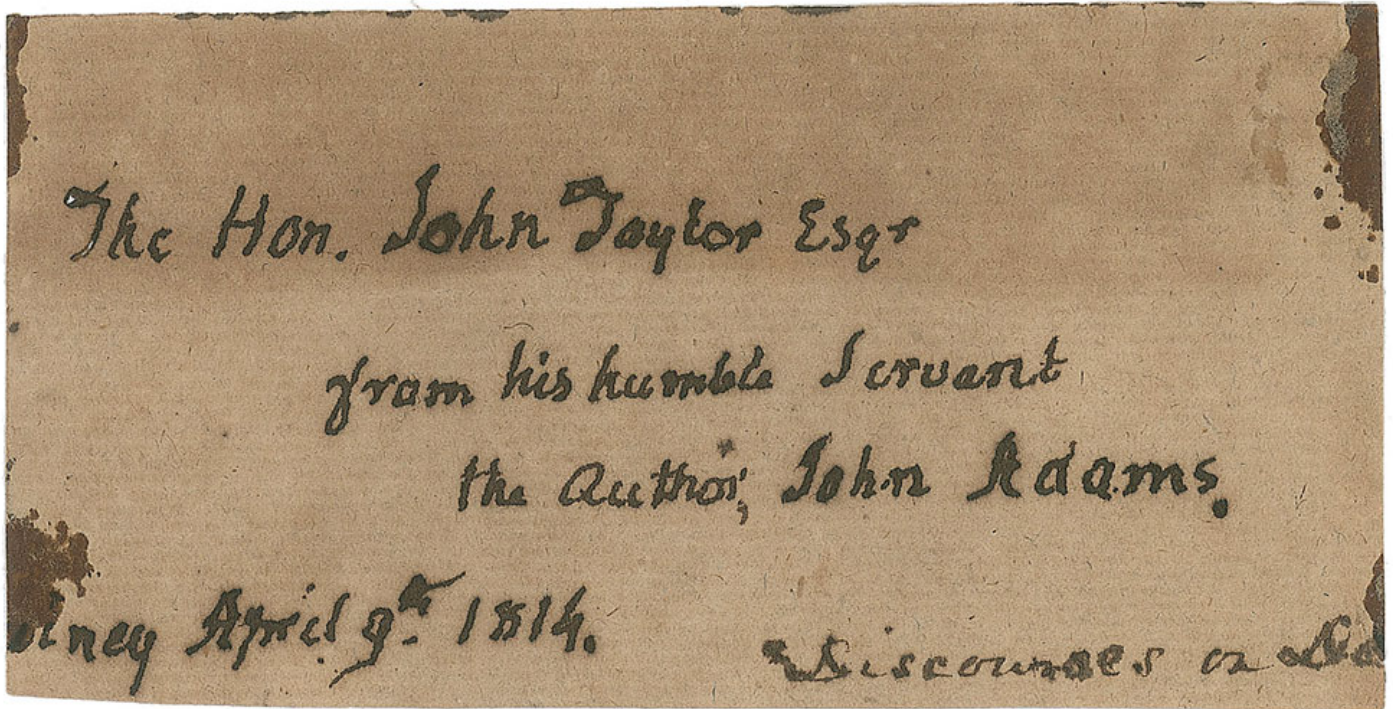 The Hon. John Taylor Esqr
from his humble Servant
the Author, John Adams.
April 9th. 1814.
Discourses on